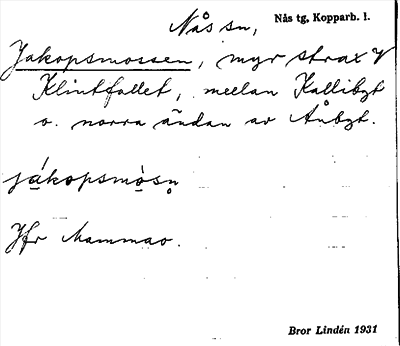 Nås sn,
Nås tg, Kopparb. l.
Jakopsmossen, myr strax V
Klintfallet, mellan Kallibgt
o. norra ändan av Ånbgt.
jákopsmòsn̥
Jfr Mammao.
Bror Lindén 1931